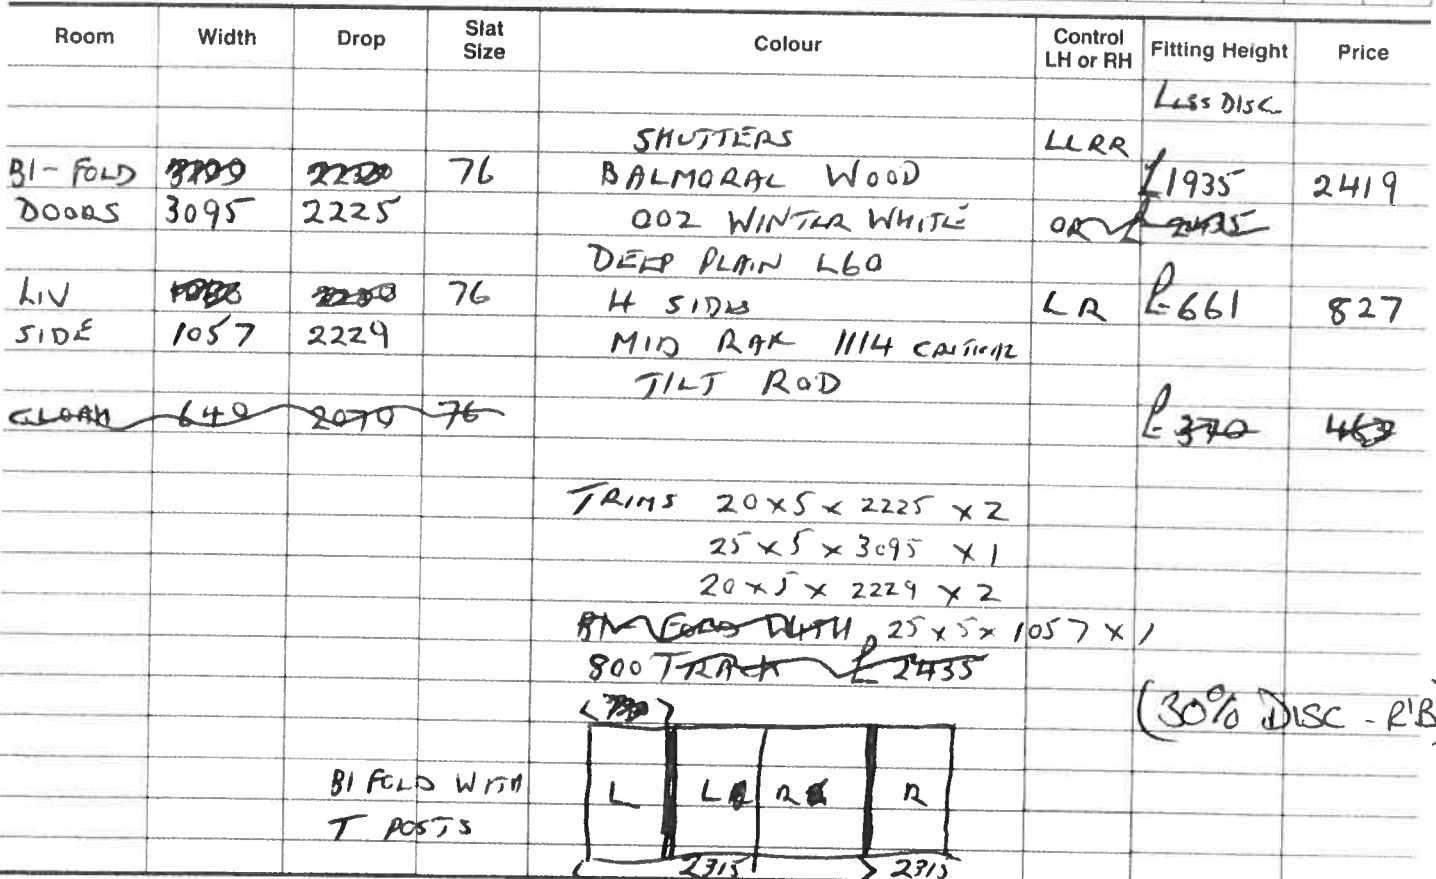 Room Width Drop Slat Size Colour Control LH or RH Fitting Height Price
LESS DISC
SHUTTERS LLRR
BI-FOLD 76 BALMORAL WOOD £1935 2419
DOORS 3095 2225 002 WINTER WHITE OR £2435
DEEP PLAIN L60
LIV 76 4 SIDES LR £661 827
SIDE 1057 2229 MID RAK 1114 CRITICAL
TILT ROD
CLOAK 640 2070 76 £370 463
TRIMS 20x5x2225 x2
25x5x3095 x1
20x5x2229 x2
BI-FOLD WITH 25x5x1057x1
800 TRACK £2435
(30% DISC - R'B)
BI FOLD WITH L L R R
T POSTS
2715 2715